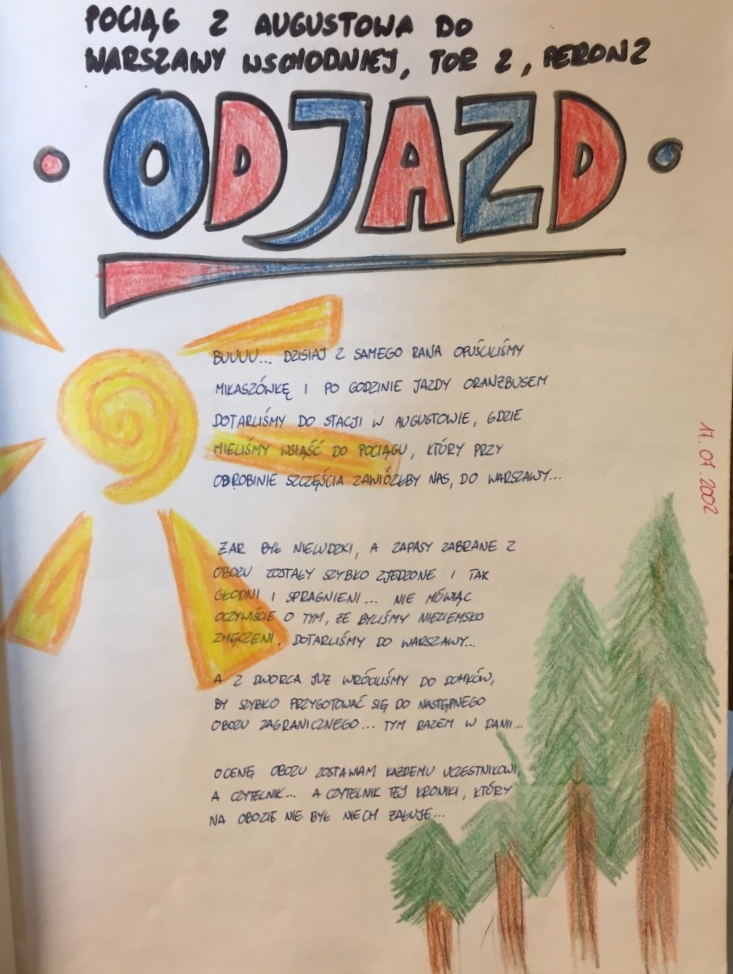 POCIĄG Z AUGUSTOWA DO
WARSZAWY WSCHODNIEJ, TOR 2, PERON 2
• ODJAZD •
BUUUU... DZISIAJ Z SAMEGO RANA OPUŚCILIŚMY
MIKASZÓWKĘ I PO GODZINIE JAZDY ORANŻBUSEM
DOTARLIŚMY DO STACJI W AUGUSTOWIE, GDZIE
MIELIŚMY WSIĄŚĆ DO POCIĄGU, KTÓRY PRZY
OBROBINIE SZCZĘŚCIA ZAWIÓZŁBY NAS, DO WARSZAWY...
ŻAR BYŁ NIELUDZKI, A ZAPASY ZABRANE Z
OBOZU ZOSTAŁY SZYBKO ZJEDZONE I TAK
GŁODNI I SPRAGNIENI... NIE MÓWIĄC
OCZYWIŚCIE O TYM, ŻE BYLIŚMY NIEZIEMSKO
ZMĘCZENI, DOTARLIŚMY DO WARSZAWY...
A Z DWORCA JUŻ WRÓCILIŚMY DO DOMKÓW,
BY SZYBKO PRZYGOTOWAĆ SIĘ DO NASTĘPNEGO
OBOZU ZAGRANICZNEGO... TYM RAZEM W DANII...
OCENĘ OBOZU ZOSTAWIAM KAŻDEMU UCZESTNIKOWI,
A CZYTELNIK... A CZYTELNIK TEJ KRONIKI, KTÓRY
NA OBOZIE NIE BYŁ NIECH ŻAŁUJE...
17.07.2002